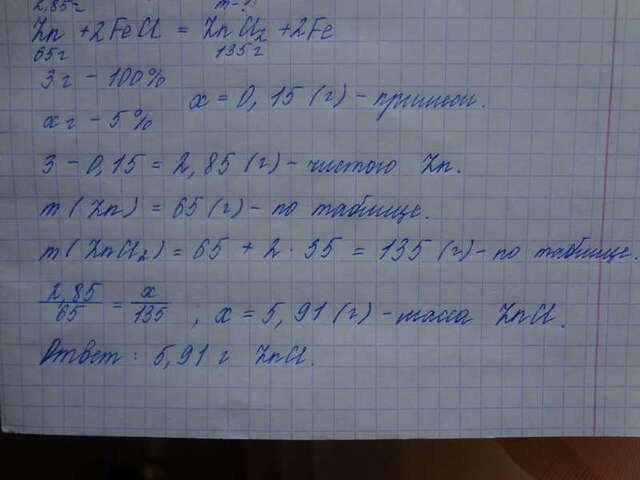 2,85г m-?
Zn + 2FeCl = ZnCl₂ + 2Fe
65г 135г
3г - 100%
x = 0,15 (г) - примеси.
xг - 5%
3 - 0,15 = 2,85 (г) - чистого Zn.
m(Zn) = 65 (г) - по таблице.
m(ZnCl₂) = 65 + 2·35 = 135 (г) - по таблице.
2,85/65 = x/135 ; x = 5,91 (г) - масса ZnCl.
Ответ: 5,91 г ZnCl.